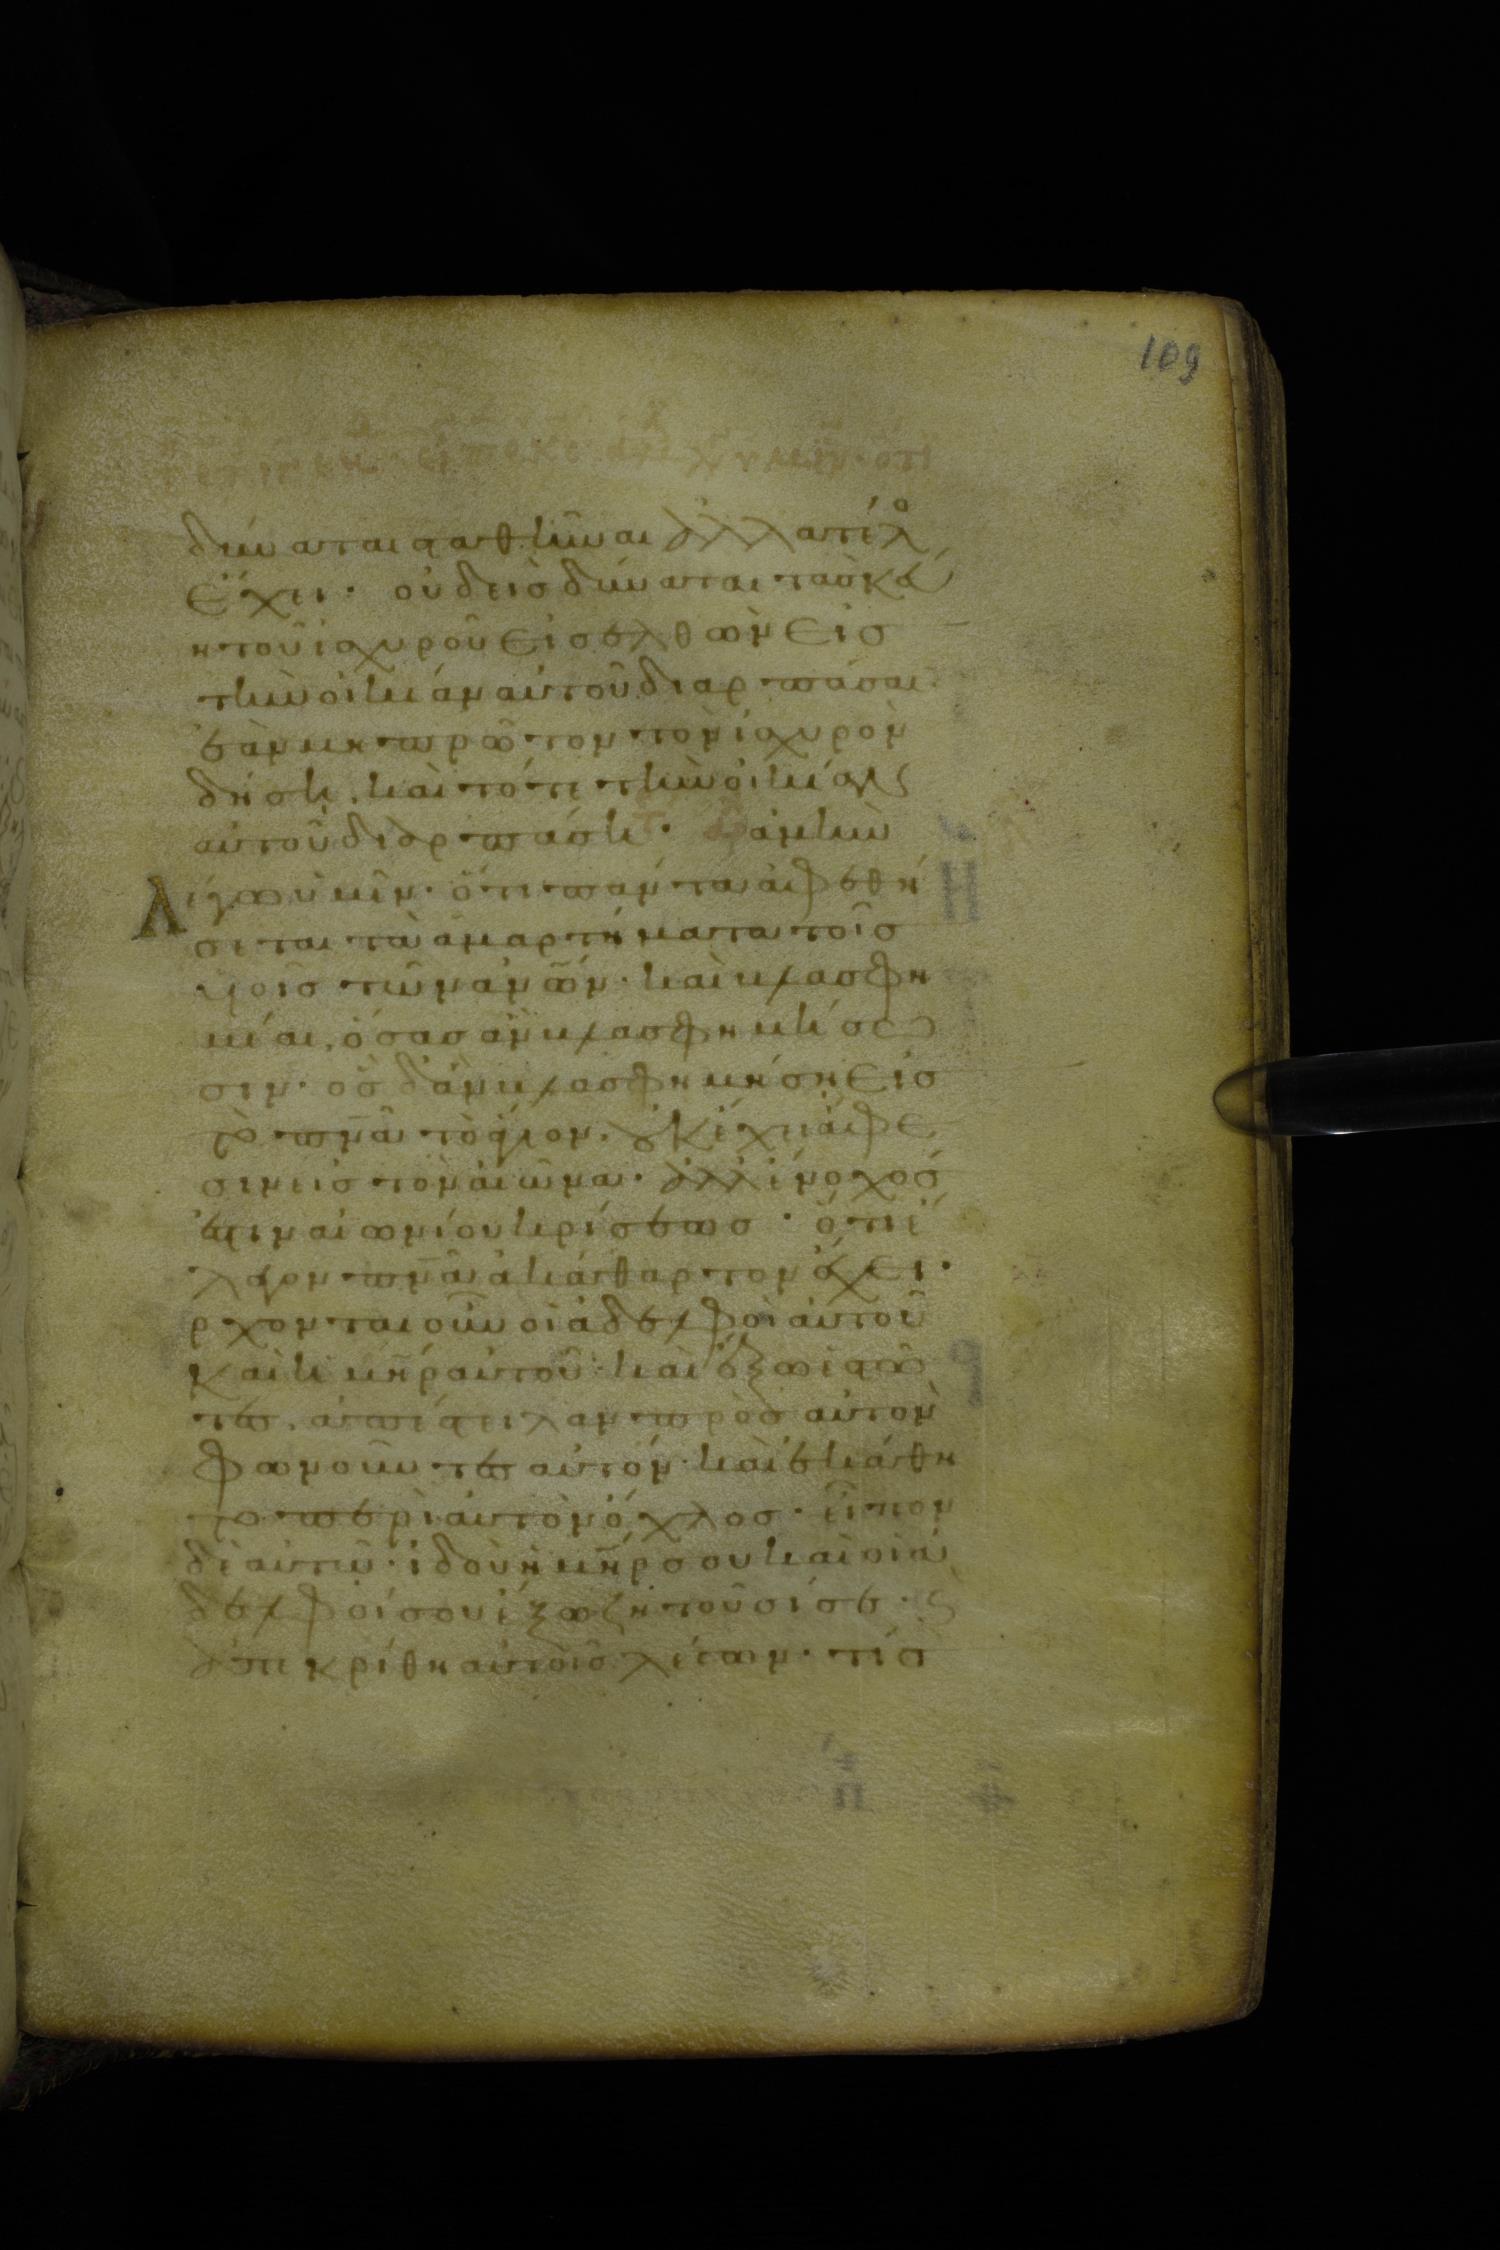 109
εἶπεν ὁ κς ὅτι
δύναται σταθῆναι ἀλλὰ τέλο
ἔχει· οὐδεὶς δύναται τὰ σκεύ
η τοῦ ἰσχυροῦ εἰσελθὼν εἰς
τὴν οἰκίαν αὐτοῦ διαρπάσαι
ἐὰν μὴ πρῶτον τὸν ἰσχυρὸν
δήσῃ, καὶ τότε τὴν οἰκίαν
αὐτοῦ διαρπάσῃ· ἀμὴν
Λέγω ὑμῖν· ὅτι πάντα ἀφεθή
σεται τὰ ἁμαρτήματα τοῖς
υἱοῖς τῶν ἀνῶν· καὶ βλασφη
μίαι, ὅσας ἂν βλασφημήσω
σιν· ὃς δ' ἂν βλασφημήσῃ εἰς
τὸ πνᾶ τὸ ἅγιον, οὐκ ἔχει ἄφε
σιν εἰς τὸν αἰῶνα· ἀλλ' ἔνοχός
ἐστιν αἰωνίου κρίσεως· ὅτι ἔ
λεγον πνᾶ ἀκάθαρτον ἔχει·
ρχονται οὖν οἱ ἀδελφοὶ αὐτοῦ
καὶ ἡ μηρ αὐτοῦ· καὶ ἔξω ἑστῶ
τες, ἀπέστειλαν πρὸς αὐτὸν
φωνοῦντες αὐτόν· καὶ ἐκάθη
το περὶ αὐτὸν ὄχλος· εἶπον
δὲ αὐτῷ· ἰδοὺ ἡ μηρ σου καὶ οἱ ἀ
δελφοί σου ἔξω ζητοῦσί σε· ϗ
ἀπεκρίθη αὐτοῖς λέγων· τίς